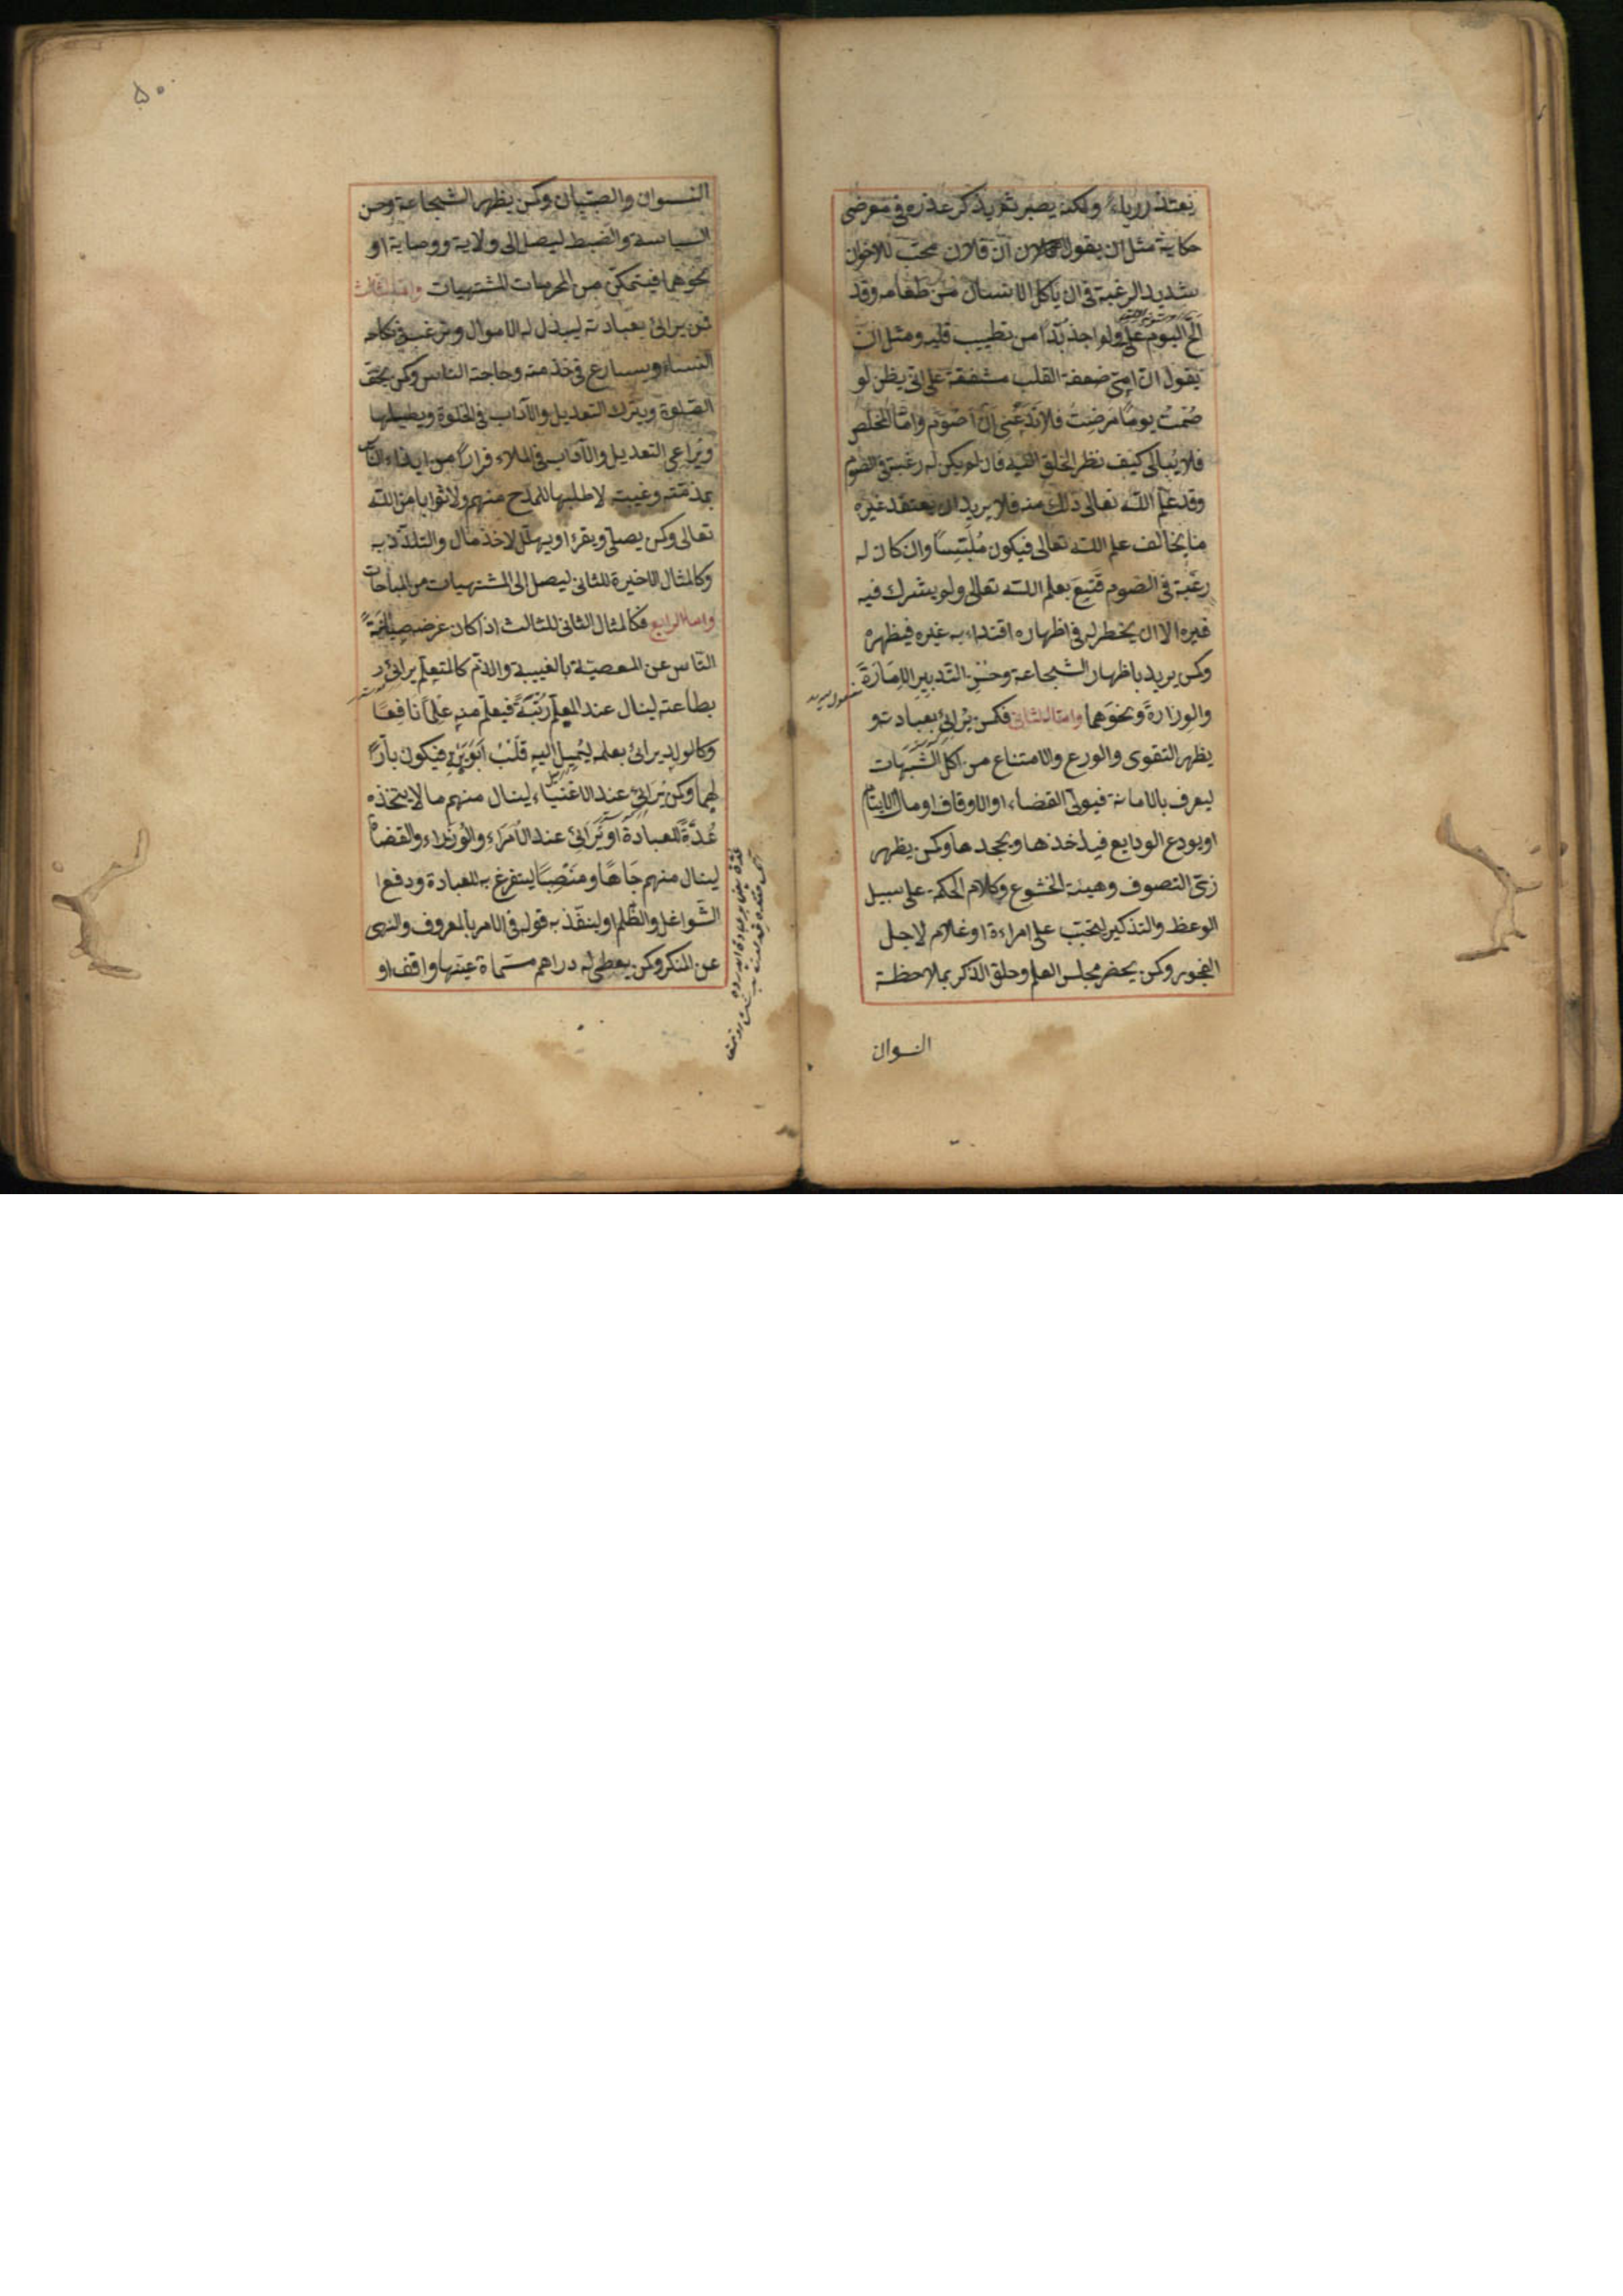 يعتذر رياء ولكنه يصبر ثم يذكر عذره في معرض
حكاية مثل ان يقول ان فلان محب للاخوان
شديد الرغبة في ان ياكل الانسان من طعامه وقد
الح اليوم علي ولم اجد بدا من تطييب قلبه ومثل ان
يقول ان امي ضعفة القلب مشفقة علي اني يظن لو
صُمْتُ يومًا مَرِضْتُ فلا تَدَعُنِي اَنْ اَصُوم واما المخلص
فلا يُبالي كيف نظر الخلق اليه فان لم يكن له رغبة في الصوم
وقد علم الله تعالى ذلك منه فلا يريد ان يعتقد غيره
ما يخالف علم الله تعالى فيكون مُلْبِسًا وان كان له
رغبة في الصوم قَنِعَ بعلم الله تعالى ولم يشرك فيه
غيره الا ان يخطر له في اظهاره اقتداء به غيره فيظهره
وكمن يريد باظهار الشجاعة وحُسْنِ التدبير الاِمَارَةَ
والوِزَارةَ ونحوَهما واما الثاني فكمن يُرائي بعبادته و
يظهر التقوى والورع والامتناع من اكل الشُّبُهَات
ليعرف بالامانة فيولى القضاء او الاوقاف او مال الايتام
او يودع الودايع فياخذها ويجحدها وكمن يظهر
زيّ التصوف وهيئة الخشوع وكلام الحكمة على سبيل
الوعظ والتذكير ليتحبّب على امراءة او غلام لاجل
الفجور وكمن يحضر مجلس العلم وحلق الذكر بملاحظة
النسوان
٥٠
النسوان والصبيان وكمن يظهر الشجاعة وحسن
السياسة والضبط ليصل الى ولاية ووصاية او
نحوهما فيتمكن من المحرمات المشتهيات واما الثالث
فمن يرائي بعبادته ليبذل له الاموال ويرغب في نكاحه
النساء ويسارع في خدمته وحاجته الناس وكمن يخفف
الصلوة ويترك التعديل والآداب في الخلوة ويطيلها
ويُراعي التعديل والآداب في الملاء فرارًا من ايذاء الناس
بمذمّته وغيبته لا طلبها للمدح منهم ولا ثوابا من الله
تعالى وكمن يصلي ويقرء او يهلّل لاخذ مال والتلذّذ به
وكالمثال الاخيرة للثاني ليصل الى المشتهيات من المباحات
واما الرابع فكالمثال الثاني للثالث اذا كان غرضه صيانة
النّاس عن المعصيّة بالغيبة والذّم كالمتعلّم يرائي
بطاعته لينال عند المعلم رُتْبَةً فيعلّم منه عِلْمًا نافِعًا
وكالولد يرائي بعلمه ليُمِيل اليه قَلْبُ اَبَوَيْهِ فيكون بارًّا
لهما وكمن يُرَائِي عند الاغْنيَاءِ لينال منهم ما لا يتخذه
عُدَّةً للعبادة او يُرَائِي عند الأُمَرَاءِ والوُزَرَاءِ والقضاة
لينال منهم جَاهًا ومَنْصِبًا يستفرغ به للعبادة ودفع ا
الشّواغل والظّلم او لينفّذ به قوله في الامر بالمعروف والنهى
عن المنكر وكمن يعطى له دراهم مسماة عيّنها واقف او